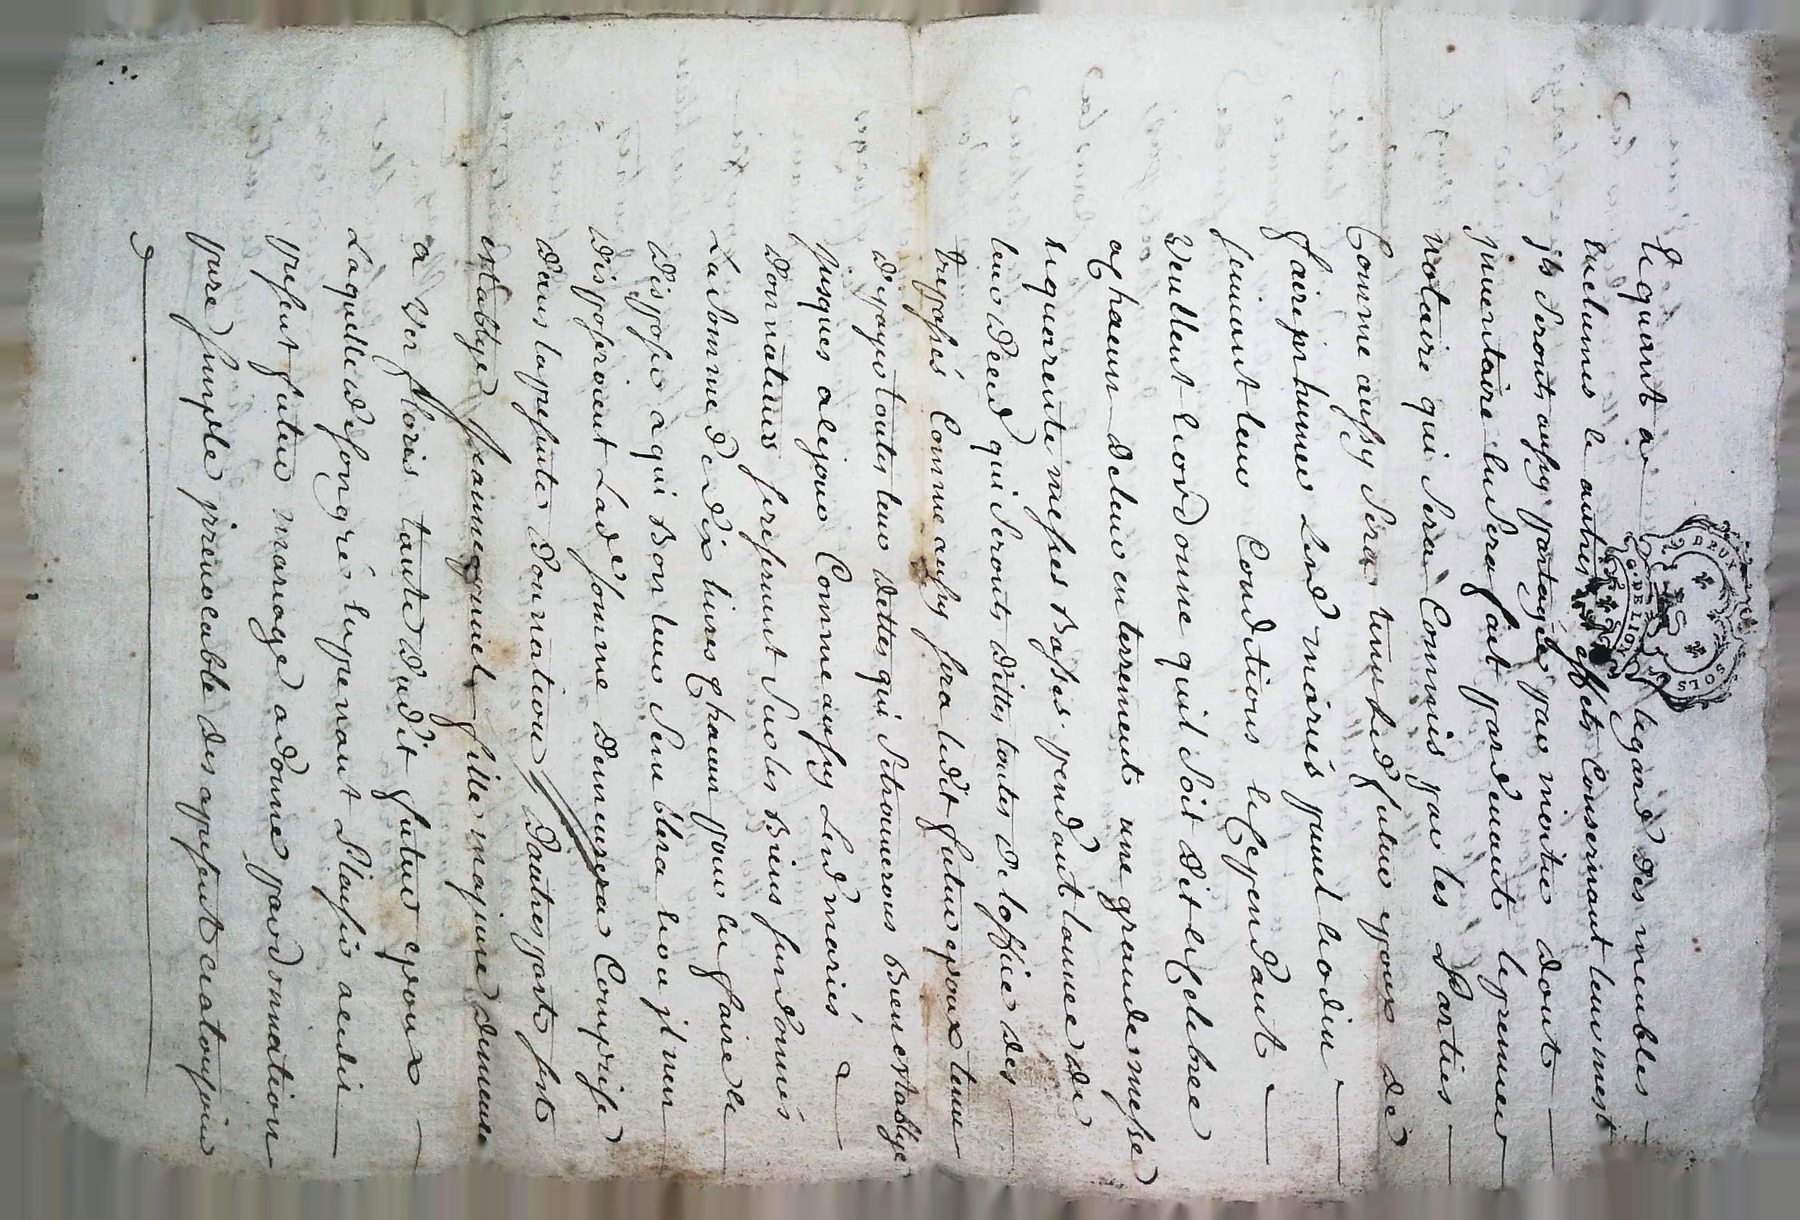 DEUX SOLS
G. DE LION
Et quant a legard des meubles
culumes le autres effets Consernant leur mest
jls Seront aussy partagée par moitié dont
jnventaire en Sera fait pardevant le premier
notaire qui Sera Commis par les Parties
Comme aussy Sera tenu Led futur epoux de
faire jnhumer Lesd mariés quant lieo dieu
feniront leur Conditions le Cependant
Veullent lieo ordonne quil Soit dit et Celebree
a Chacun de leur enterrement une grande messe
et quarente messes Basses pendant lannee de
leur deced qui Seronts dittes toutes de loffice des
trepassés Comme aussy sera ledit futur epoux tenu
de payer toutes leur dettes qui Setrouverons Bien establye
jusques alejour Comme aussy Lesd mariés
donnateurs se reservent Sur les Biens sus donnés
La Somme de dix livres Chacun pour en faire le
disposer a qui Bon leur Semblera lieou jl nen
disposeroient Lad.e Somme demeurera Comprise
dans la presente donnation // dautres parts fut
establye jeanne gruel fille majeure demeure
a Ver floris tante dudit futur epoux
Laquelle de son gré luy venant Plaisir audit
present futur mariage a donné par donnation
pure simple jrrevocable des a present